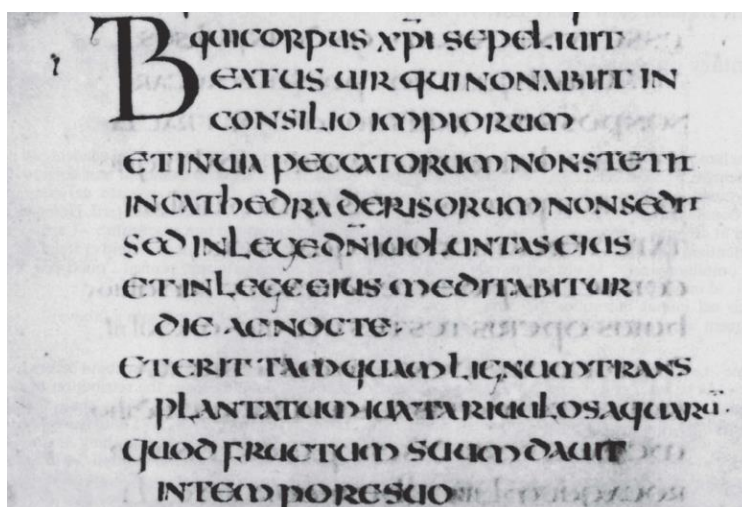 QUI CORPUS XPI SEPELIUIT
BEATUS UIR QUI NON ABIIT IN
CONSILIO IMPIORUM
ET IN UIA PECCATORUM NON STETIT
IN CATHEDRA DERISORUM NON SEDIT
SED IN LEGE DNI UOLUNTAS EIUS
ET IN LEGE EIUS MEDITABITUR
DIE AC NOCTE·
ET ERIT TAMQUAM LIGNUM TRANS
PLANTATUM IUXTA RIUULOS AQUARU̅·
QUOD FRUCTUM SUUM DAUIT
IN TEMPORE SUO